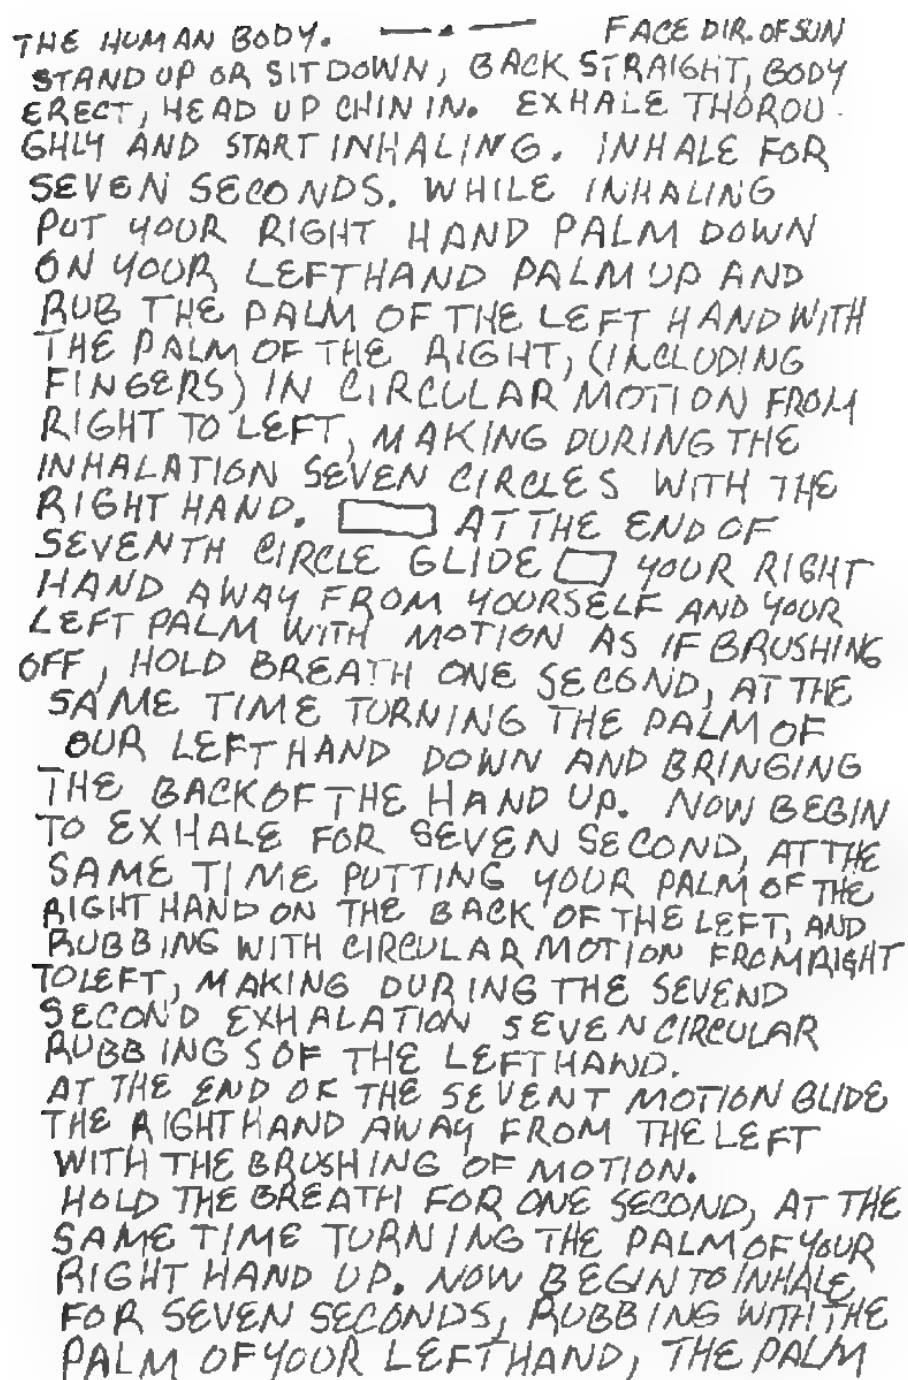 THE HUMAN BODY. —.— FACE DIR. OF SUN
STAND UP OR SIT DOWN, BACK STRAIGHT, BODY
ERECT, HEAD UP CHIN IN. EXHALE THOROU
GHLY AND START INHALING. INHALE FOR
SEVEN SECONDS. WHILE INHALING
PUT YOUR RIGHT HAND PALM DOWN
ON YOUR LEFT HAND PALM UP AND
RUB THE PALM OF THE LEFT HAND WITH
THE PALM OF THE RIGHT, (INCLUDING
FINGERS) IN CIRCULAR MOTION FROM
RIGHT TO LEFT, MAKING DURING THE
INHALATION SEVEN CIRCLES WITH THE
RIGHT HAND. AT THE END OF
SEVENTH CIRCLE GLIDE YOUR RIGHT
HAND AWAY FROM YOURSELF AND YOUR
LEFT PALM WITH MOTION AS IF BRUSHING
OFF, HOLD BREATH ONE SECOND, AT THE
SAME TIME TURNING THE PALM OF
OUR LEFT HAND DOWN AND BRINGING
THE BACK OF THE HAND UP. NOW BEGIN
TO EXHALE FOR SEVEN SECOND, AT THE
SAME TIME PUTTING YOUR PALM OF THE
RIGHT HAND ON THE BACK OF THE LEFT, AND
RUBBING WITH CIRCULAR MOTION FROM RIGHT
TO LEFT, MAKING DURING THE SEVEND
SECOND EXHALATION SEVEN CIRCULAR
RUBBINGS OF THE LEFT HAND.
AT THE END OF THE SEVENT MOTION GLIDE
THE RIGHT HAND AWAY FROM THE LEFT
WITH THE BRUSHING OF MOTION.
HOLD THE BREATH FOR ONE SECOND, AT THE
SAME TIME TURNING THE PALM OF YOUR
RIGHT HAND UP. NOW BEGIN TO INHALE
FOR SEVEN SECONDS, RUBBING WITH THE
PALM OF YOUR LEFT HAND, THE PALM